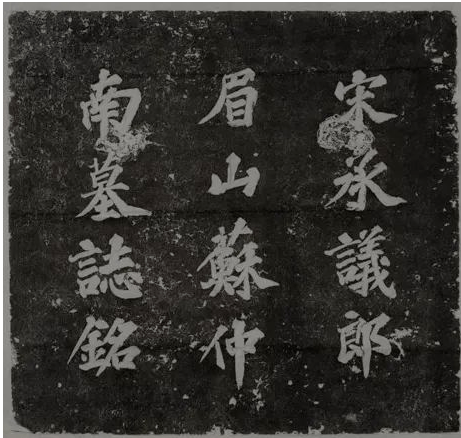 宋承議郎
眉山蘇仲
南墓誌銘